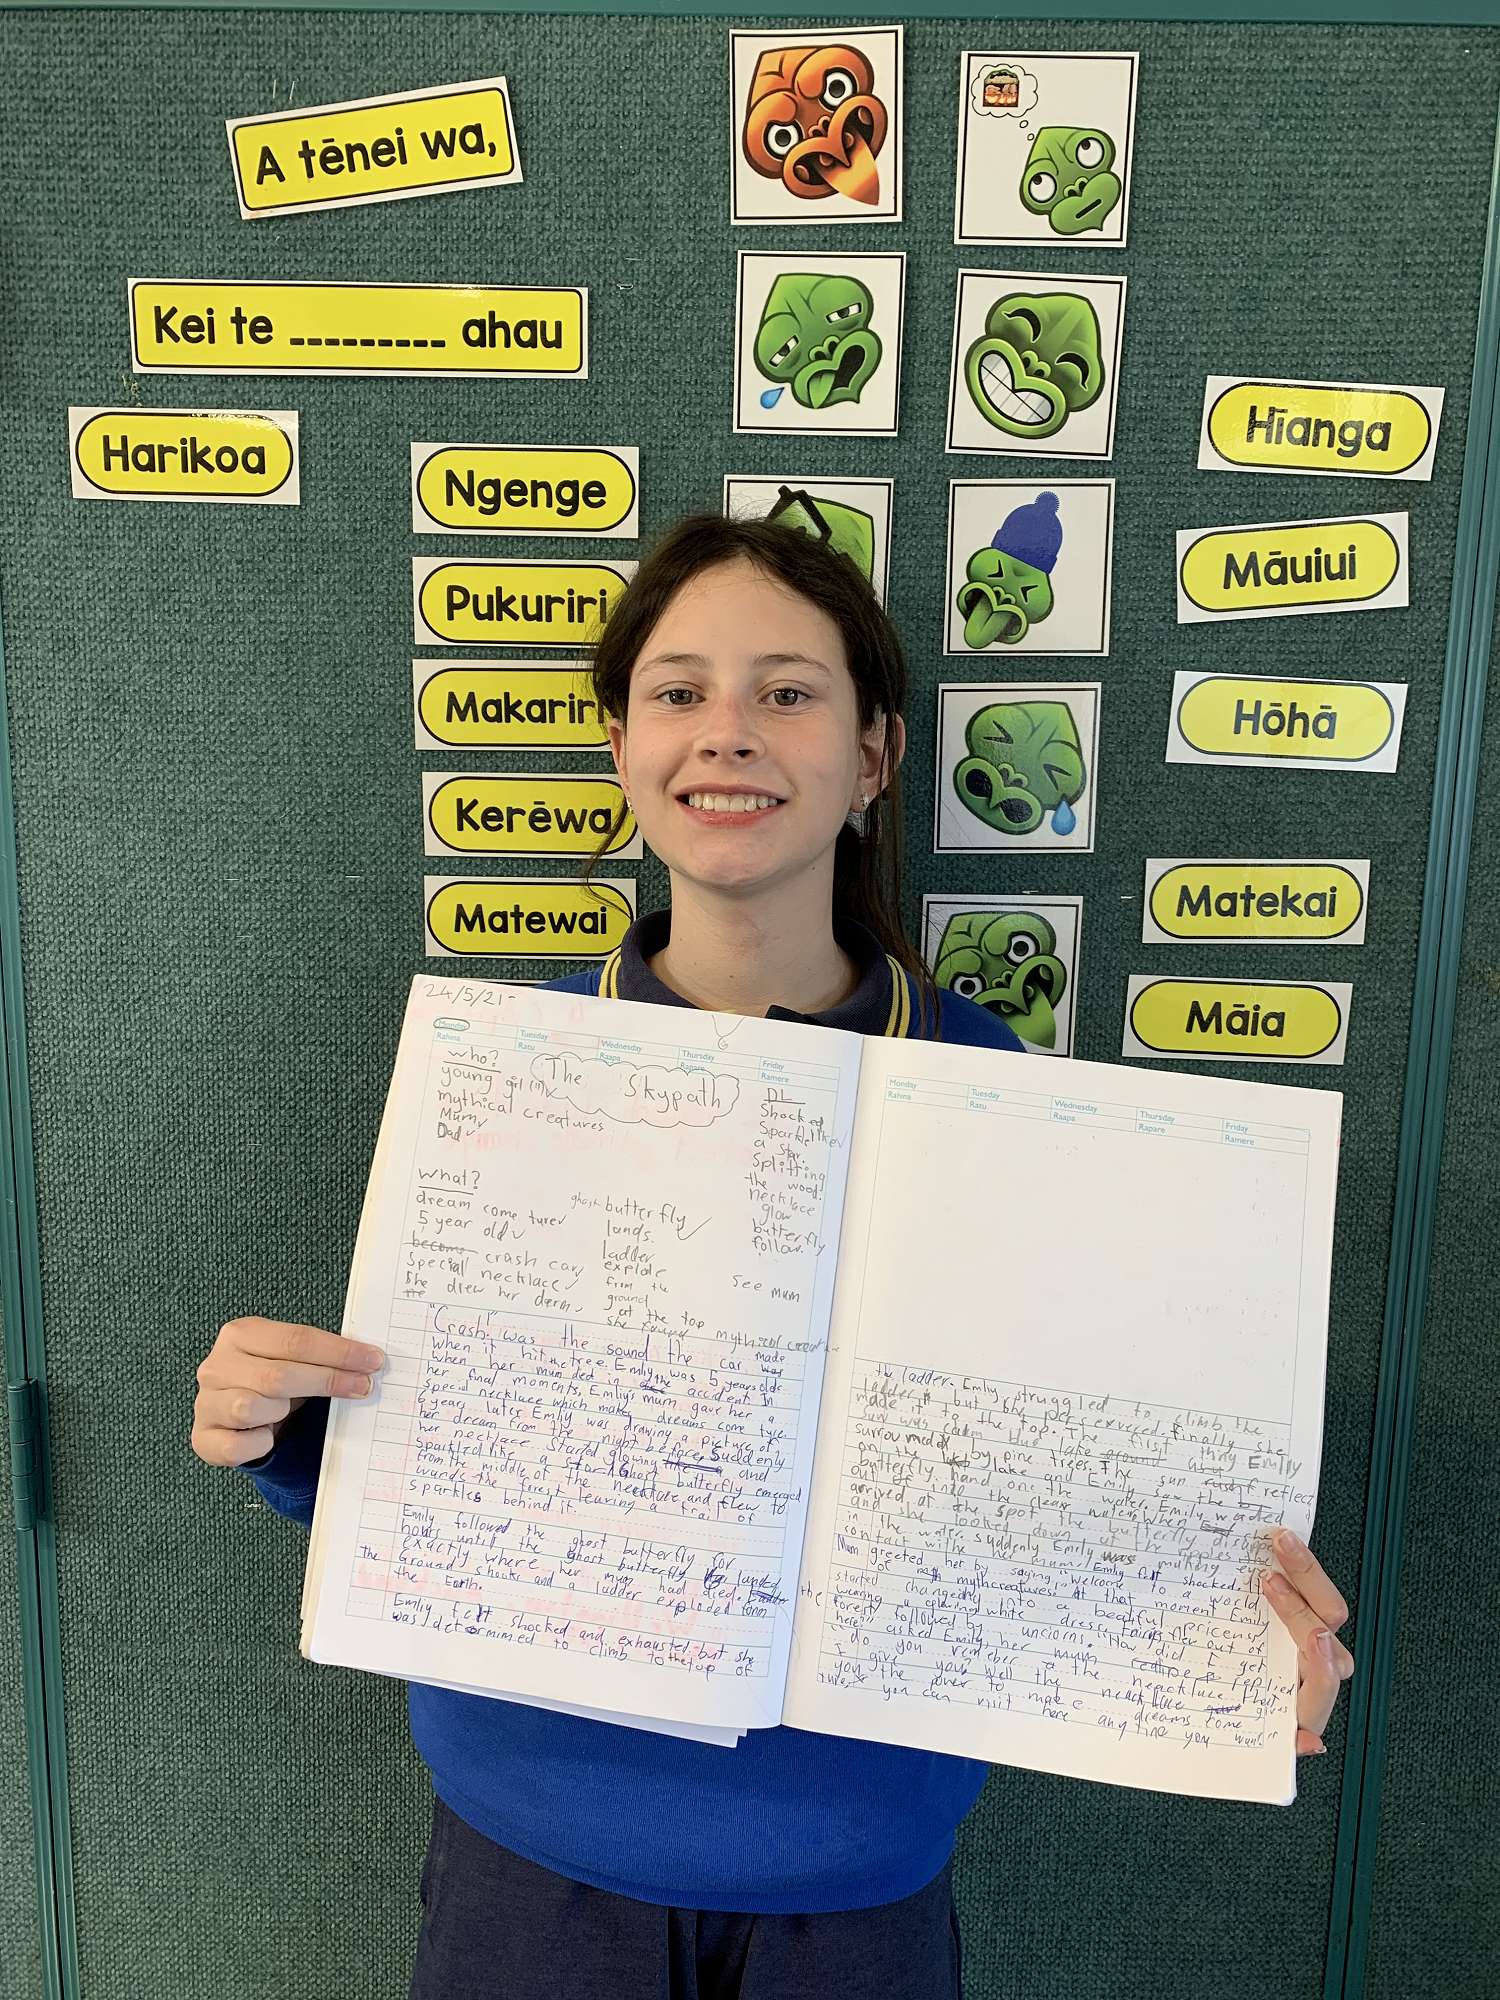 A tēnei wa,
Kei te _________ ahau
Harikoa
Ngenge
Pukuriri
Makariri
Kerēwa
Matewai
Hīanga
Māuiui
Hōhā
Matekai
Māia
24/5/21
Monday Tuesday Wednesday Thursday Friday
Rahina Ratu Raapa Rapare Ramere
The Skypath
who?
young girl (11)
mythical creatures
Mum
Dad
what?
dream come ture
5 year old
become crash car
special necklace
she drew her derm
ghost butterfly
lands.
ladder
explode
from the
ground
at the top
she found mythical
DL
Shocked
Sparkle like
a star.
Splitting
the wood.
necklace
glow
butterfly
follow.
see mum
"Crash!" was the sound the car made
when it hit the tree. Emliy was 5 years old
when her mum died in the accident. In
her final moments, Emliy's mum gave her a
special necklace which makes dreams come ture.
6 years later Emliy was drawing a picture of
her dream from the night before. Suddenly
her necklace started glowing and
sparkled like a star. Ghost butterfly emerged
from the middle of the necklace and flew to
wards the forest leaving a trail of
sparkles behind it.
Emliy followed the ghost butterfly for
hours until the ghost butterfly landed
exactly where her mum had died.
The Ground shook and a ladder exploded form
the Earth.
Emliy felt shocked and exhausted but she
was determined to climb to the top of
Monday Tuesday Wednesday Thursday Friday
Rahina Ratu Raapa Rapare Ramere
the ladder. Emliy struggled to climb the
ladder but she perservered. finally she
made it to the top. The first thing Emliy
saw was a lake
surrounded by pine trees. The sun reflect
on the lake and Emliy saw the
butterfly hand one the water. Emliy waded
out into the clear water. When she
arrived at the spot the butterfly
and she looked down at the ripples
in the water. suddenly Emliy making eye
contact withe her mum. Emliy felt shocked.
Mum greeted her by saying "welcome to a world
of myth creatures". At that moment Emliy
started changeing into a beatiful pricenss
wearing a white dress. fairys flew out of
the forest followed by unciorns. "How did I get
here?" asked Emliy, her mum replied
"do you remeber the neacklace that
I give you? well the neacklace gives
you the power to make dreams come
ture, you can visit here any time you want."